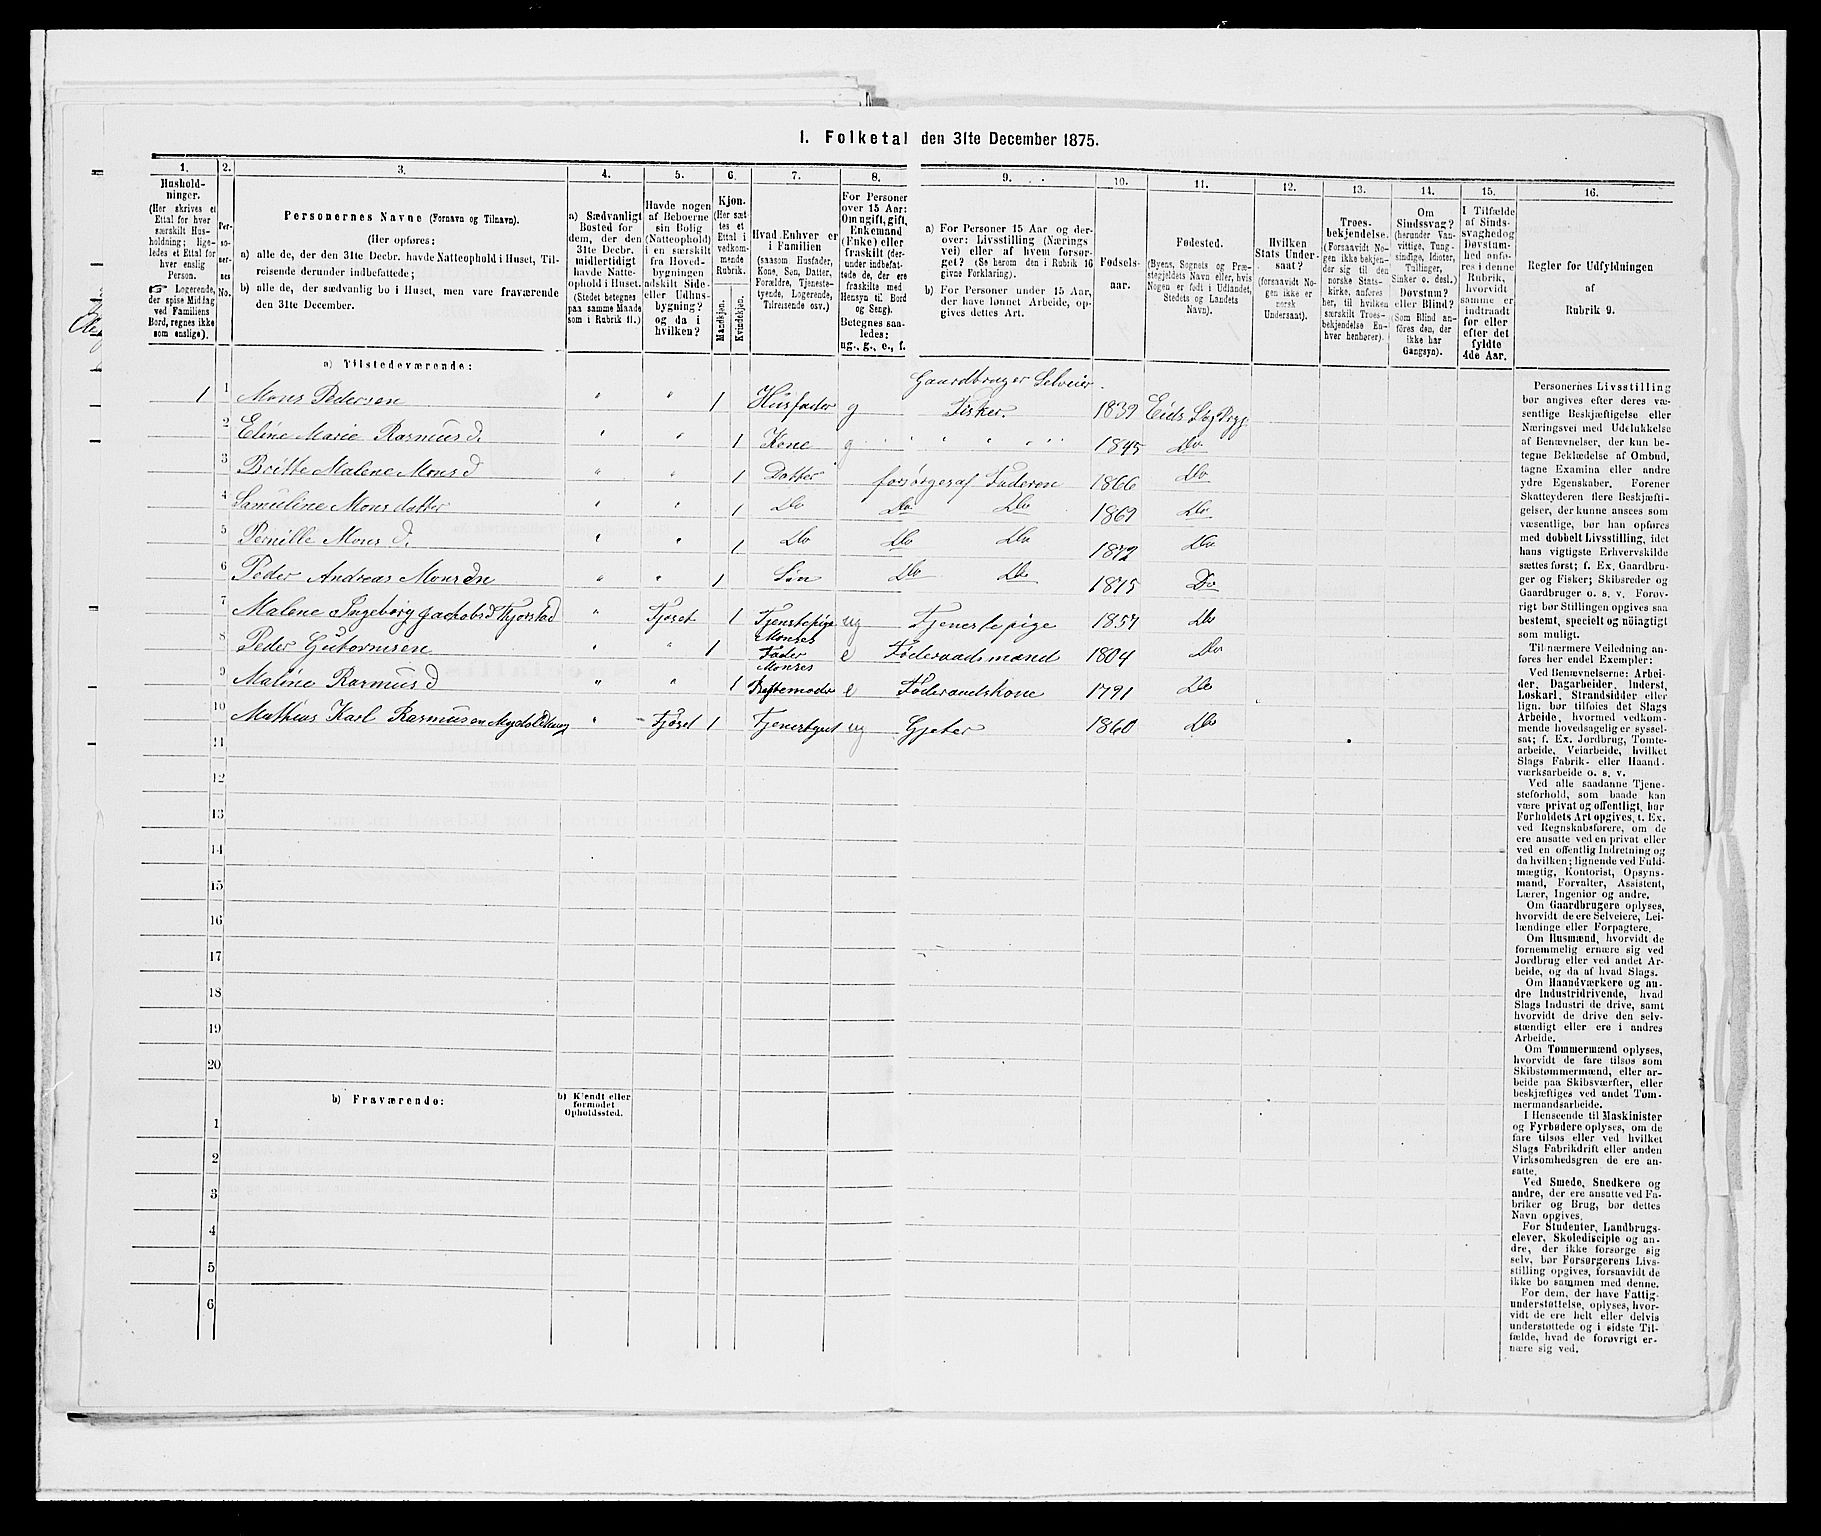 1. Folketal den 31te December 1875.
1.
Hushold-
ninger.
(Her skrives et
Ettal for hver
særskilt Hus-
holdning; lige-
ledes et Ettal for
hver enslig
Person.
☞ Logerende,
der spise Middag
ved Familiens
Bord, regnes ikke
som enslige).
2.
Per-
so-
ner-
nes
No.
3.
Personernes Navne (Fornavn og Tilnavn).
(Her opføres:
a) alle de, der den 31te Decbr. havde Natteophold i Huset, Til-
reisende derunder indbefattede;
b) alle de, der sædvanlig bo i Huset, men vare fraværende
den 31te December.
4.
a) Sædvanligt
Bosted for
dem, der den
31te Decbr.
midlertidigt
havde Natte-
ophold i Huset.
(Stedet betegnes
paa samme Maade
som i Rubrik 11.)
5.
Havde nogen
af Beboerne
sin Bolig
(Natteophold)
i en særskilt
fra Hoved-
bygningen
adskilt Side-
eller Udhus-
bygning?
og da i
hvilken?
6.
Kjøn.
(Her sæt-
tes et
Ettal i
vedkom-
mende
Rubrik.
Mandkjøn.
Kvindekjøn.
7.
Hvad Enhver er
i Familien
(saasom Husfader,
Kone, Søn, Datter,
Forældre, Tjeneste-
tyende, Logerende,
Tilreisende osv.)
8.
For Personer
over 15 Aar:
Om ugift, gift,
Enkemand
(Enke) eller
fraskilt (der-
under indbefat-
tede de, der ere
fraskilte med
Hensyn til Bord
og Seng).
Betegnes saa-
ledes:
ug., g., e., f.
9.
a) For Personer 15 Aar og der-
over: Livsstilling (Nærings
vei) eller af hvem forsør-
get? (Se herom den i Rubrik 16
givne Forklaring).
b) For Personer under 15 Aar,
der have lønnet Arbeide, op-
gives dettes Art.
10.
Fødsels-
aar.
11.
Fødested.
(Byens, Sognets og Præ-
stegjeldets Navn eller, hvis
Nogen er født i Udlandet,
Stedets og Landets
Navn).
12.
Hvilken
Stats Under-
saat?
(forsaavidt No-
gen ikke er
norsk
Undersaat).
13.
Troes-
bekjendelse.
(Forsaavidt No-
gen ikke bekjen-
der sig til den
norske Stats-
kirke, anføres
her, til hvilken
særskilt Troes-
bekjendelse En-
hver henhører).
14.
Om
Sindssvag?
(herunder Van-
vittige, Tung-
sindige, Idioter,
Tullinger,
Sinker o. desl.)
Døvstum?
eller Blind?
(Som Blind an-
føres den, der
ikke har
Gangsyn).
15.
I Tilfælde
af Sinds-
svaghed og
Døvstum-
hed anfø-
res i denne
Rubrik,
hvorvidt
samme er
indtraadt
før eller
efter det
fyldte
4de Aar.
16.
Regler for Udfyldningen
af
Rubrik 9.
a) Tilstedeværende:
1 1 Mons Pedersen " " 1 Husfader g Gaardbruger Selveier.
Fisker. 1839 Eids Sog Prgj.
2 Eline Marie Rasmus d. " " 1 Kone g " " " " " 1845 Do
3 Britte Malene Mons d " " 1 Datter forsørges af Faderen 1866 Do
4 Samuline Mons datter " " 1 Do Do Do 1869 Do
5 Pernille Mons d. " " 1 Do Do Do 1872 Do
6 Peder Andreas Monsen " " 1 Søn Do Do 1875 Do
7 Malene Ingeborg Jacobsd " Fjøset 1 Tjenstepige ug Tjenestepige 1857 Do
8 Peder Gutormsen " " 1 Monses
Fader e Føderaadsmand 1804 Do
9 Maline Rasmus d " " 1 Monses
e Føderaadskone 1791 Do
10 Mathias Karl Rasmusen " Fjøset 1 Tjenestgut ug Gjeter 1860 Do
11
12
13
14
15
16
17
18
19
20
b) Fraværende:
b) Kjendt eller
formodet
Opholdssted.
1
2
3
4
5
6
Personernes Livsstilling
bør angives efter deres væ-
sentlige Beskjæftigelse eller
Næringsvei med Udelukkelse
af Benævnelser, der kun be-
tegne Beklædelse af Ombud,
tagne Examina eller andre
ydre Egenskaber. Forener
Skatteyderen flere Beskjæfti-
gelser, der kunne ansees som
væsentlige, bør han opføres
med dobbelt Livsstilling, idet
hans vigtigste Erhvervskilde
sættes først; f. Ex. Gaardbru-
ger og Fisker; Skibsreder og
Gaardbruger o. s. v. Forøv-
rigt bør Stillingen opgives saa
bestemt, specielt og nøiagtigt
som muligt.
Til nærmere Veiledning an-
føres her endel Exempler:
Ved Benævnelserne: Arbei-
der, Dagarbeider, Inderst,
Loskarl, Strandsidder eller
lign. bør tilføies det Slags
Arbeide, hvormed vedkom-
mende hovedsagelig er syssel-
sat; f. Ex. Jordbrug, Tomte-
arbeide, Veiarbeide, hvilket
Slags Fabrik- eller Haand-
værksarbeide o. s. v.
Ved alle saadanne Tjene-
steforhold, som baade kan
være privat og offentligt, bør
Forholdets Art opgives, t. Ex.
ved Regnskabsførere, om de
ere ansatte ved en privat eller
ved en offentlig Indretning og
da hvilken; lignende ved Fuld-
mægtig, Kontorist, Opsyns-
mand, Forvalter, Assistent,
Lærer, Ingeniør og andre.
Om Gaardbrugere oplyses,
hvorvidt de ere Selveiere, Lei-
lændinge eller Forpagtere.
Om Husmænd, hvorvidt de
fornemmelig ernære sig ved
Jordbrug eller ved andet Ar-
beide, og da af hvad Slags.
Om Haandværkere og an-
dre Industridrivende, hvad
Slags Industri de drive, samt
hvorvidt de drive den selv-
stændigt eller ere i andres
Arbeide.
Om Tømmermænd oplyses,
hvorvidt de fare tilsøs som
Skibstømmermænd, eller ar-
beide paa Skibsværfter, eller
beskjæftiges ved andet Tøm-
mermandsarbeide.
I Henseende til Maskinister
og Fyrbødere oplyses, om de
fare tilsøs eller ved hvilket
Slags Fabrikdrift eller anden
Virksomhedsgren de ere an-
satte.
Ved Smede, Snedkere og
andre, der ere ansatte ved Fa-
briker og Brug, bør dettes
Navn opgives.
For Studenter, Landbrugs-
elever, Skoledisciple og an-
dre, der ikke forsørge sig
selv, bør Forsørgerens Livs-
stilling opgives, forsaavidt de
ikke bo sammen med denne.
For dem, der have Fattig-
understøttelse, oplyses, hvor-
vidt de ere helt eller delvis
understøttede og i sidste Til-
fælde, hvad de forøvrigt er-
nære sig ved.